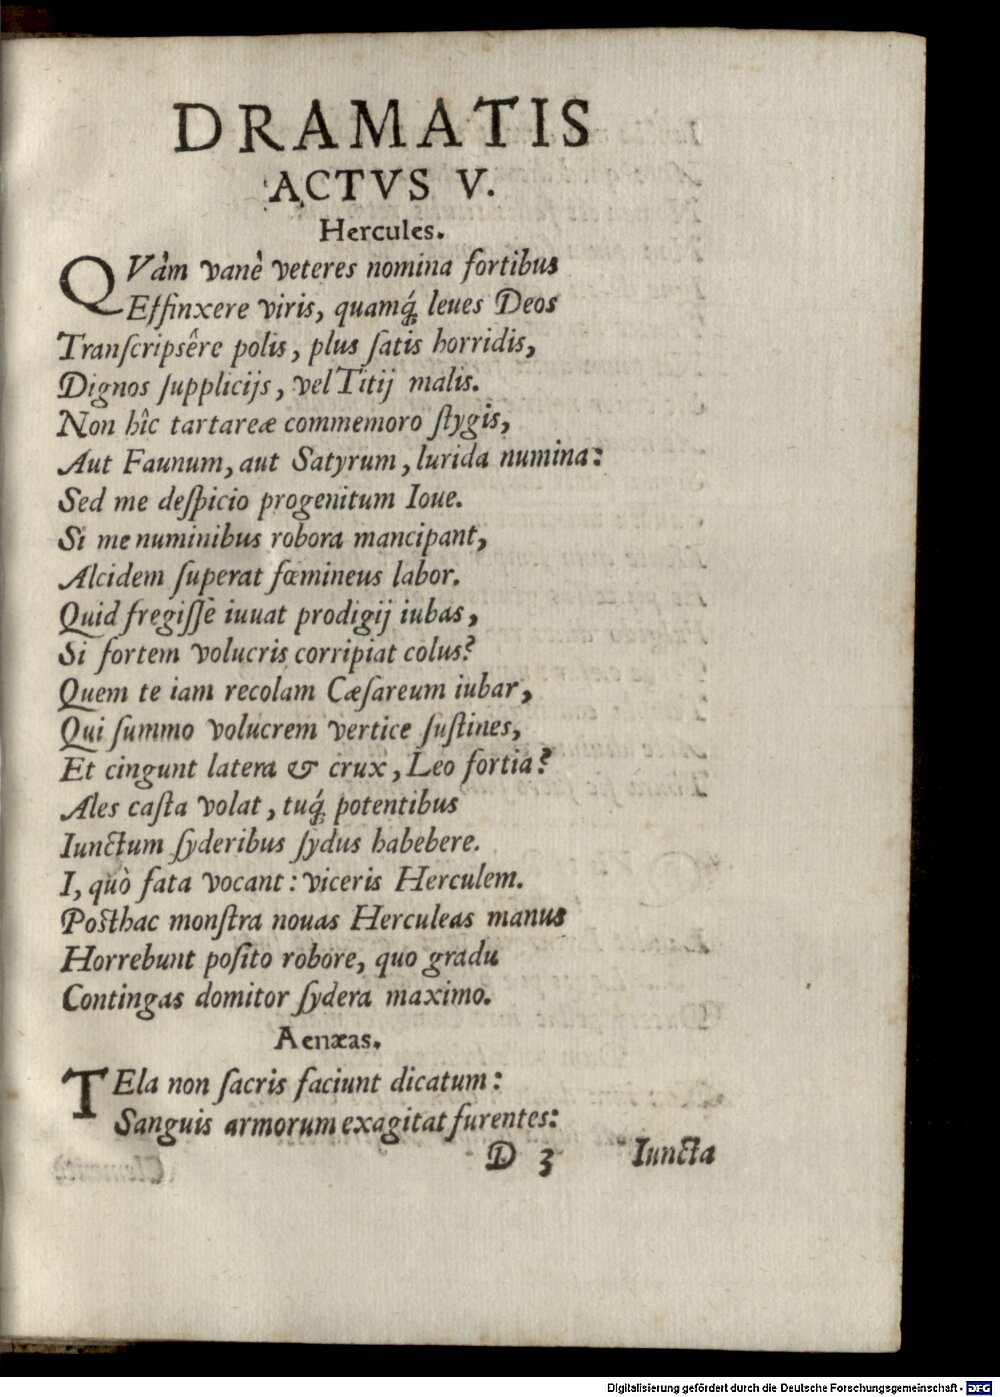 DRAMATIS
ACTVS V.
Hercules.
QVàm vanè veteres nomina fortibus
Effinxere viris, quamq́; leues Deos
Tranſcripsêre polis, plus ſatis horridis,
Dignos ſupplicijs, vel Titij malis.
Non hîc tartareæ commemoro ſtygis,
Aut Faunum, aut Satyrum, lurida numina:
Sed me deſpicio progenitum Ioue.
Si me numinibus robora mancipant,
Alcidem ſuperat fœmineus labor.
Quid fregiſſe iuuat prodigij iubas,
Si fortem volucris corripiat colus?
Quem te iam recolam Cæſareum iubar,
Qui ſummo volucrem vertice ſuſtines,
Et cingunt latera & crux, Leo fortia?
Ales caſta volat, tuq́; potentibus
Iunctum ſyderibus ſydus habebere.
I, quò fata vocant: viceris Herculem.
Posthac monſtra nouas Herculeas manus
Horrebunt poſito robore, quo gradu
Contingas domitor ſydera maximo.
Aenæas.
TEla non ſacris faciunt dicatum:
Sanguis armorum exagitat furentes:
D 3 Iuncta
Digitalisierung gefördert durch die Deutsche Forschungsgemeinschaft - DFG